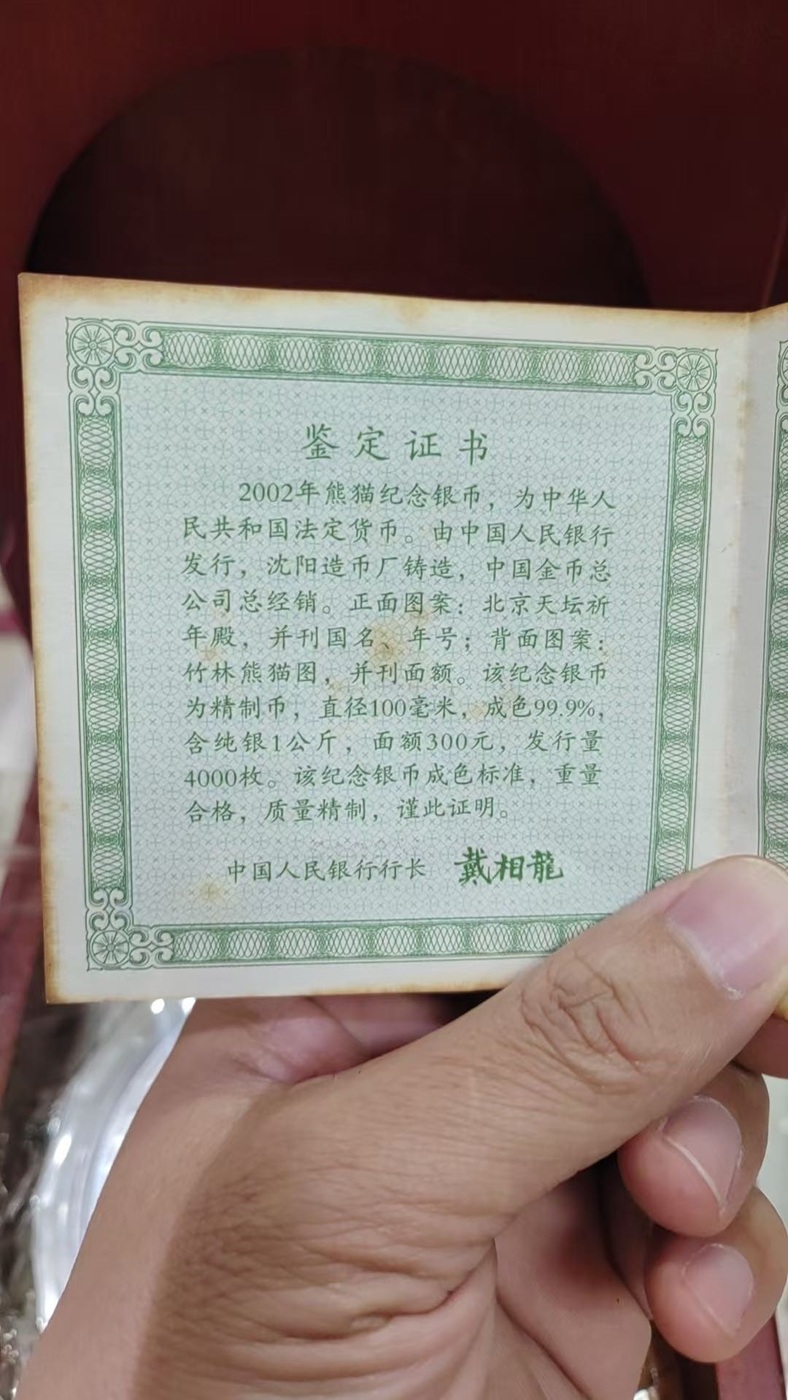 鉴定证书
2002年熊猫纪念银币，为中华人
民共和国法定货币。由中国人民银行
发行，沈阳造币厂铸造，中国金币总
公司总经销。正面图案：北京天坛祈
年殿，并刊国名、年号；背面图案：
竹林熊猫图，并刊面额。该纪念银币
为精制币，直径100毫米，成色99.9%，
含纯银1公斤，面额300元，发行量
4000枚。该纪念银币成色标准，重量
合格，质量精制，谨此证明。
中国人民银行行长 戴相龍